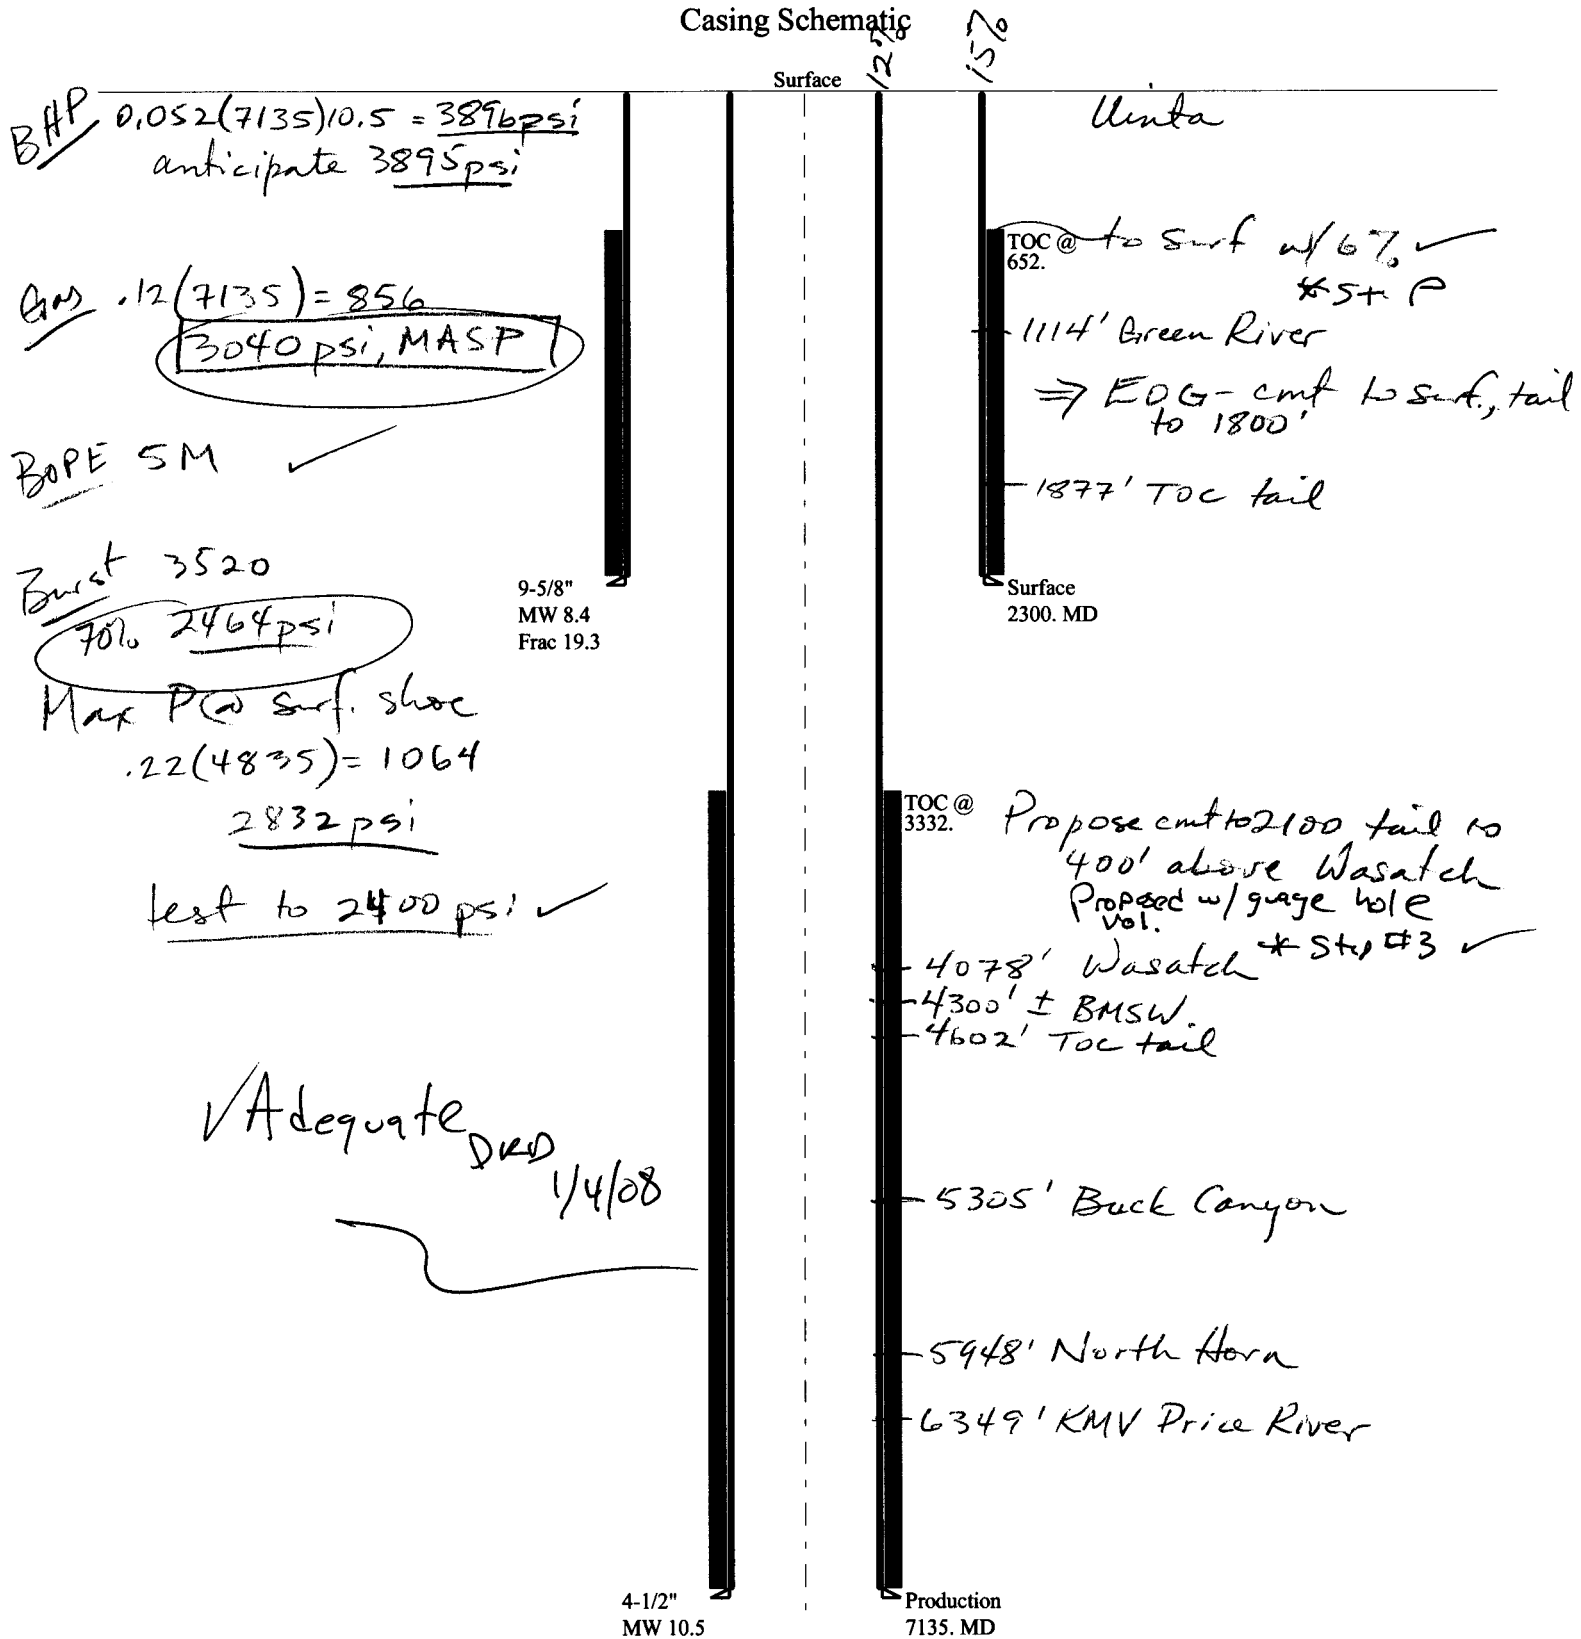 Casing Schematic
12%
15%
Surface
BHP 0.052(7135)10.5 = 3896psi
anticipate 3895psi
Gas .12(7135) = 856
3040 psi, MASP
BOPE 5M ✓
Burst 3520
70% 2464psi
Max P@ surf. shoe
.22(4835)= 1064
2832 psi
test to 2400 psi ✓
✓Adequate
DKD
1/4/08
9-5/8"
MW 8.4
Frac 19.3
4-1/2"
MW 10.5
Uinta
TOC @ to surf w/ 6% ✓
652.
*St P
1114' Green River
⇒ EOG- cmt to surf., tail
to 1800'
1877' TOC tail
Surface
2300. MD
TOC @
3332.
Propose cmt to 2100 tail to
400' above Wasatch
Proposed w/ guage hole
vol.
* Stip #3 ✓
4078' Wasatch
4300' ± BMSW.
4602' TOC tail
5305' Buck Canyon
5948' North Horn
6349' KMV Price River
Production
7135. MD